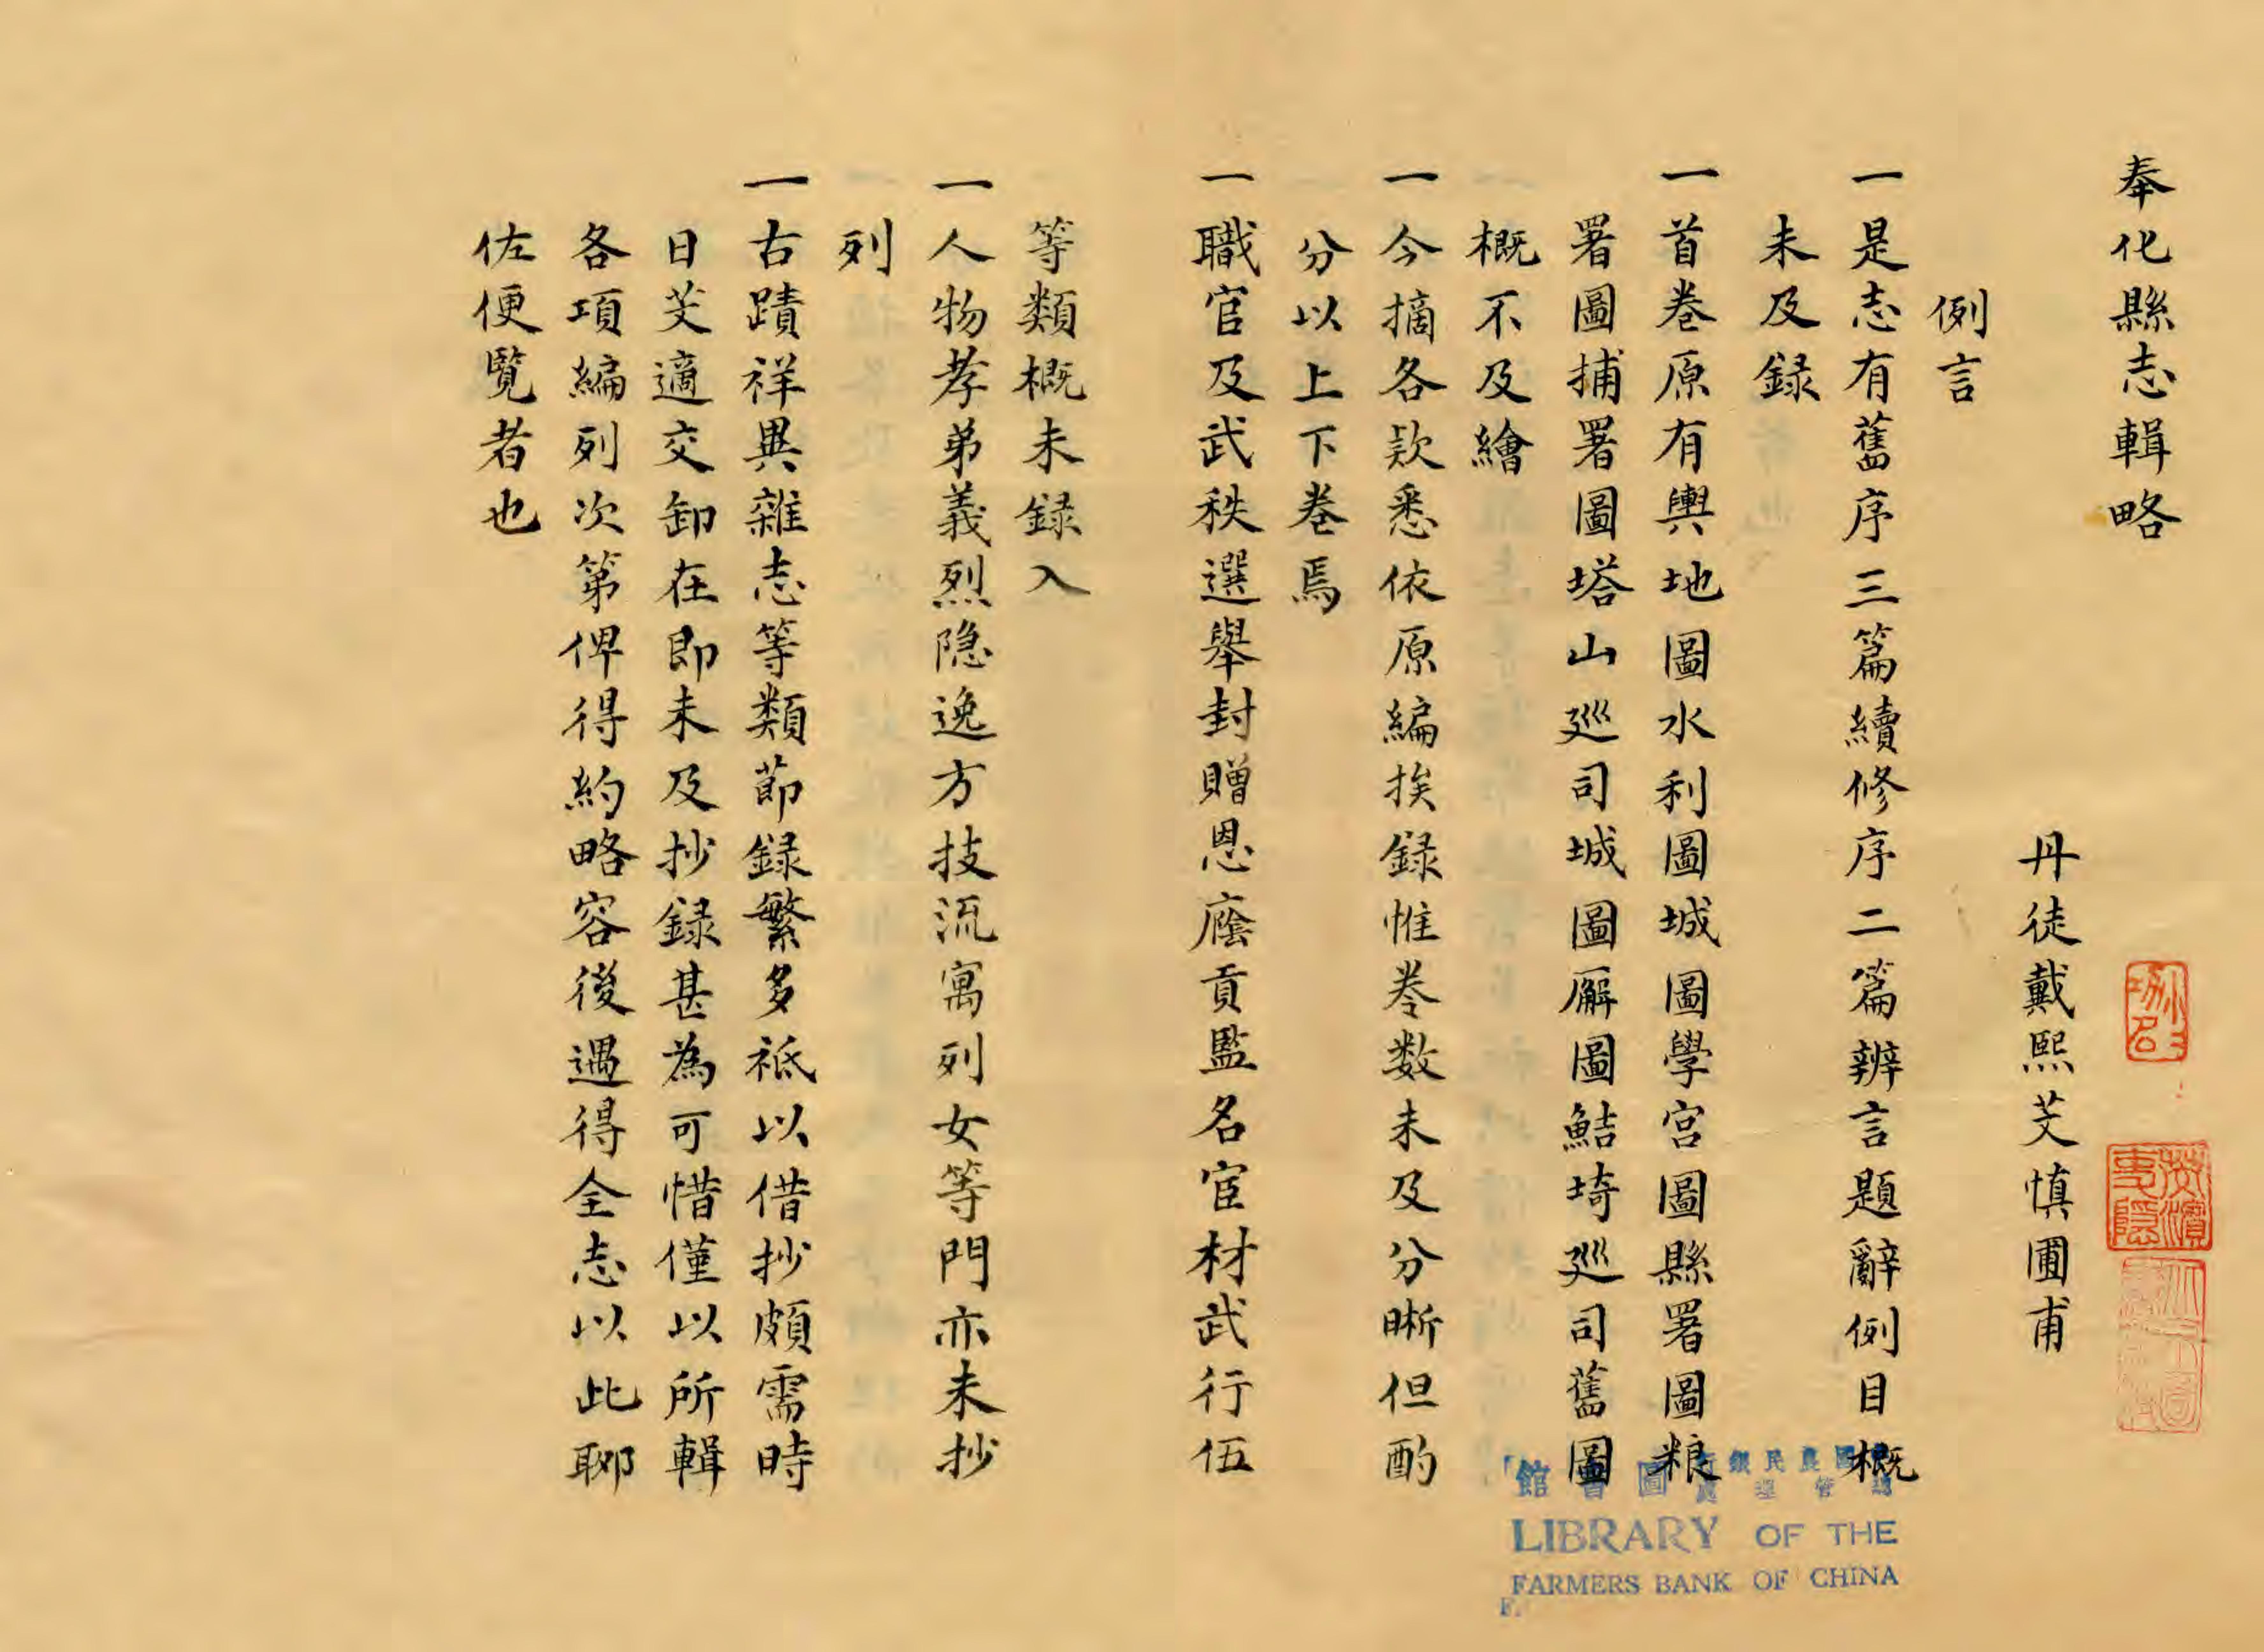 奉化縣志輯略
丹徒戴熙芠慎圃甫
例言
一是志有舊序三篇續修序二篇辨言題辭例目概
未及録
一首卷原有輿地圖水利圖城圖學宮圖縣署圖粮
署圖捕署圖塔山巡司城圖廨圖鮚埼巡司舊圖
概不及繪
一今摘各款悉依原編挨録惟卷数未及分晰但酌
分以上下卷焉
一職官及武秩選舉封贈恩廕貢監名宦材武行伍
等類概未録入
一人物孝弟義烈隐逸方技流寓列女等門亦未抄
列
一古蹟祥異雜志等類節録繁多祗以借抄頗需時
日芠適交卸在即未及抄録甚為可惜僅以所輯
各項編列次第俾得約略容後遇得全志以此聊
佐便覽者也
國農民銀行
總管理處
圖書館
LIBRARY OF THE
FARMERS BANK OF CHINA